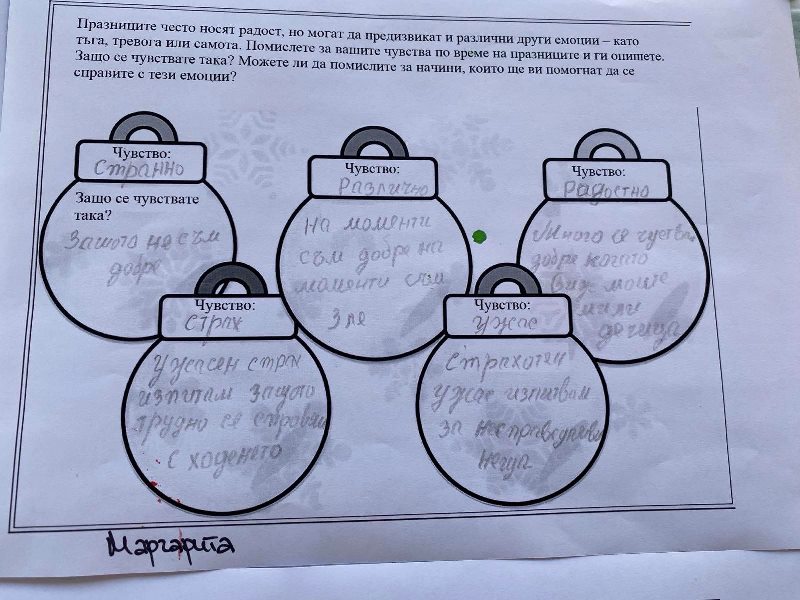 Празниците често носят радост, но могат да предизвикат и различни други емоции – като
тъга, тревога или самота. Помислете за вашите чувства по време на празниците и ги опишете.
Защо се чувствате така? Можете ли да помислите за начини, които ще ви помогнат да се
справите с тези емоции?
Чувство:
Странно
Защо се чувствате
така?
Защото не съм
добре
Чувство:
Различно
На моменти
съм добре на
моменти съм
зле
Чувство:
Радостно
Много се чуствам
добре когато
видя моите
мили
дечица
Чувство:
Страх
Ужасен страх
изпитам защото
трудно се справям
с ходенето
Чувство:
Ужас
Страхотен
ужас изпитвам
за несправедливи
неща
Маргарита